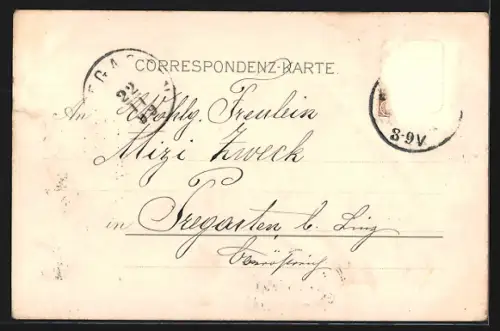 CORRESPONDENZ-KARTE
An Wohlg. Freulein
Mizi Zweck
in Pregarten b. Linz
Oberösterreich
8-9V